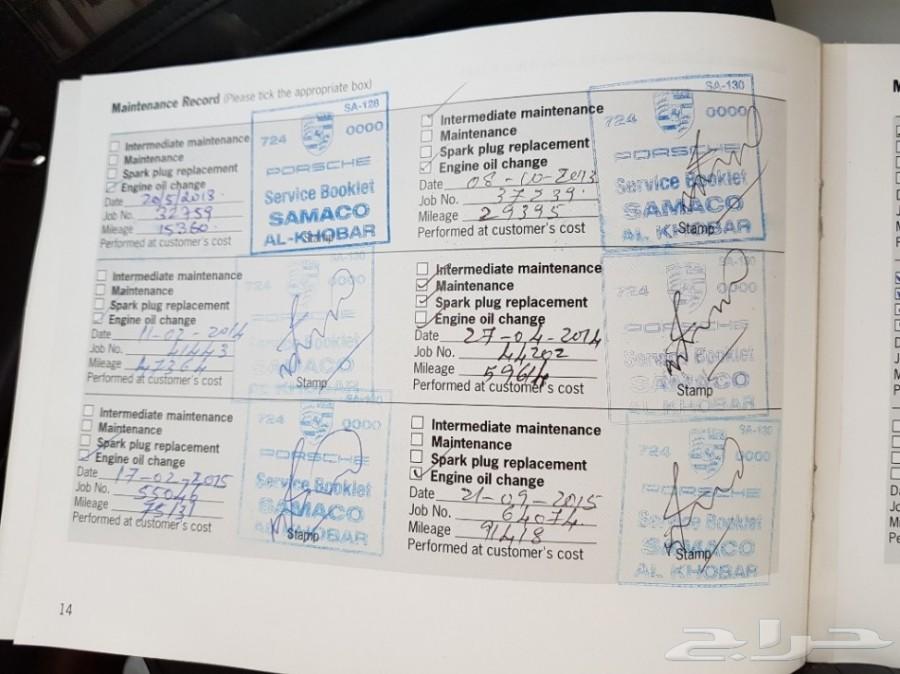 Maintenance Record (Please tick the appropriate box)
Intermediate maintenance
Maintenance
Spark plug replacement
Engine oil change
Date 20/5/2013
Job No. 32759
Mileage 15360
Performed at customer's cost
SA-128
724 0000
PORSCHE
Service Booklet
SAMACO
AL-KHOBAR
Stamp
Intermediate maintenance
Maintenance
Spark plug replacement
Engine oil change
Date 08-10-2013
Job No. 37239
Mileage 29395
Performed at customer's cost
SA-130
724 0000
PORSCHE
Service Booklet
SAMACO
AL KHOBAR
Stamp
Intermediate maintenance
Maintenance
Spark plug replacement
Engine oil change
Date 11-02-2014
Job No. 41443
Mileage 47364
Performed at customer's cost
SA-130
724 0000
PORSCHE
Service Booklet
SAMACO
AL KHOBAR
Stamp
Intermediate maintenance
Maintenance
Spark plug replacement
Engine oil change
Date 27-04-2014
Job No. 44202
Mileage
Performed at customer's cost
SA-130
724 0000
PORSCHE
Service Booklet
SAMACO
AL KHOBAR
Stamp
Intermediate maintenance
Maintenance
Spark plug replacement
Engine oil change
Date 17-02-2015
Job No. 55046
Mileage 75131
Performed at customer's cost
724 0000
PORSCHE
Service Booklet
SAMACO
AL KHOBAR
Stamp
Intermediate maintenance
Maintenance
Spark plug replacement
Engine oil change
Date 21-09-2015
Job No. 64074
Mileage 91418
Performed at customer's cost
SA-130
724 0000
PORSCHE
Service Booklet
SAMACO
AL KHOBAR
Stamp
14
حراج